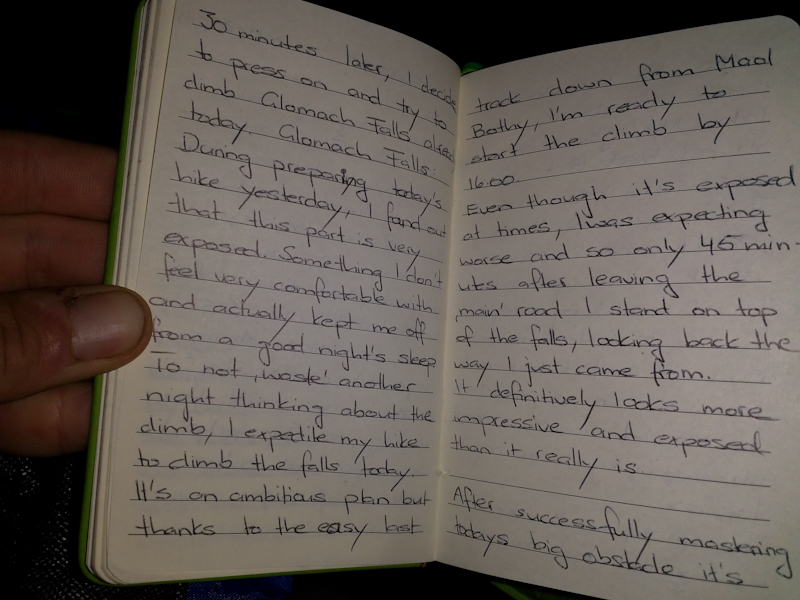 30 minutes later, I decide
to press on and try to
climb Glomach Falls alrea
today. Glomach Falls:
During preparing today's
hike yesterday, I found out
that this part is very
exposed. Something I don't
feel very comfortable with
and actually kept me off
from a good night's sleep
To not ,waste' another
night thinking about the
climb, I expedite my hike
to climb the falls today.
It's an ambitious plan but
thanks to the easy last
track down from Maol
Bothy, I'm ready to
start the climb by
16:00
Even though it's exposed
at times, I was expecting
worse and so only 45 min-
utes after leaving the
,main' road I stand on top
of the falls, looking back the
way I just came from.
It definitively looks more
impressive and exposed
than it really is.
After successfully mastering
todays big obstacle it's